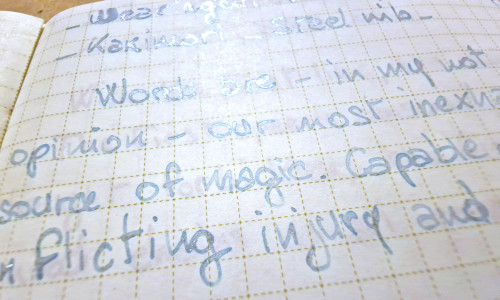 - Wear
- Kakimori - steel nib -
Words are - in my not
opinion - our most inex
source of magic. Capable
nflicting injury and